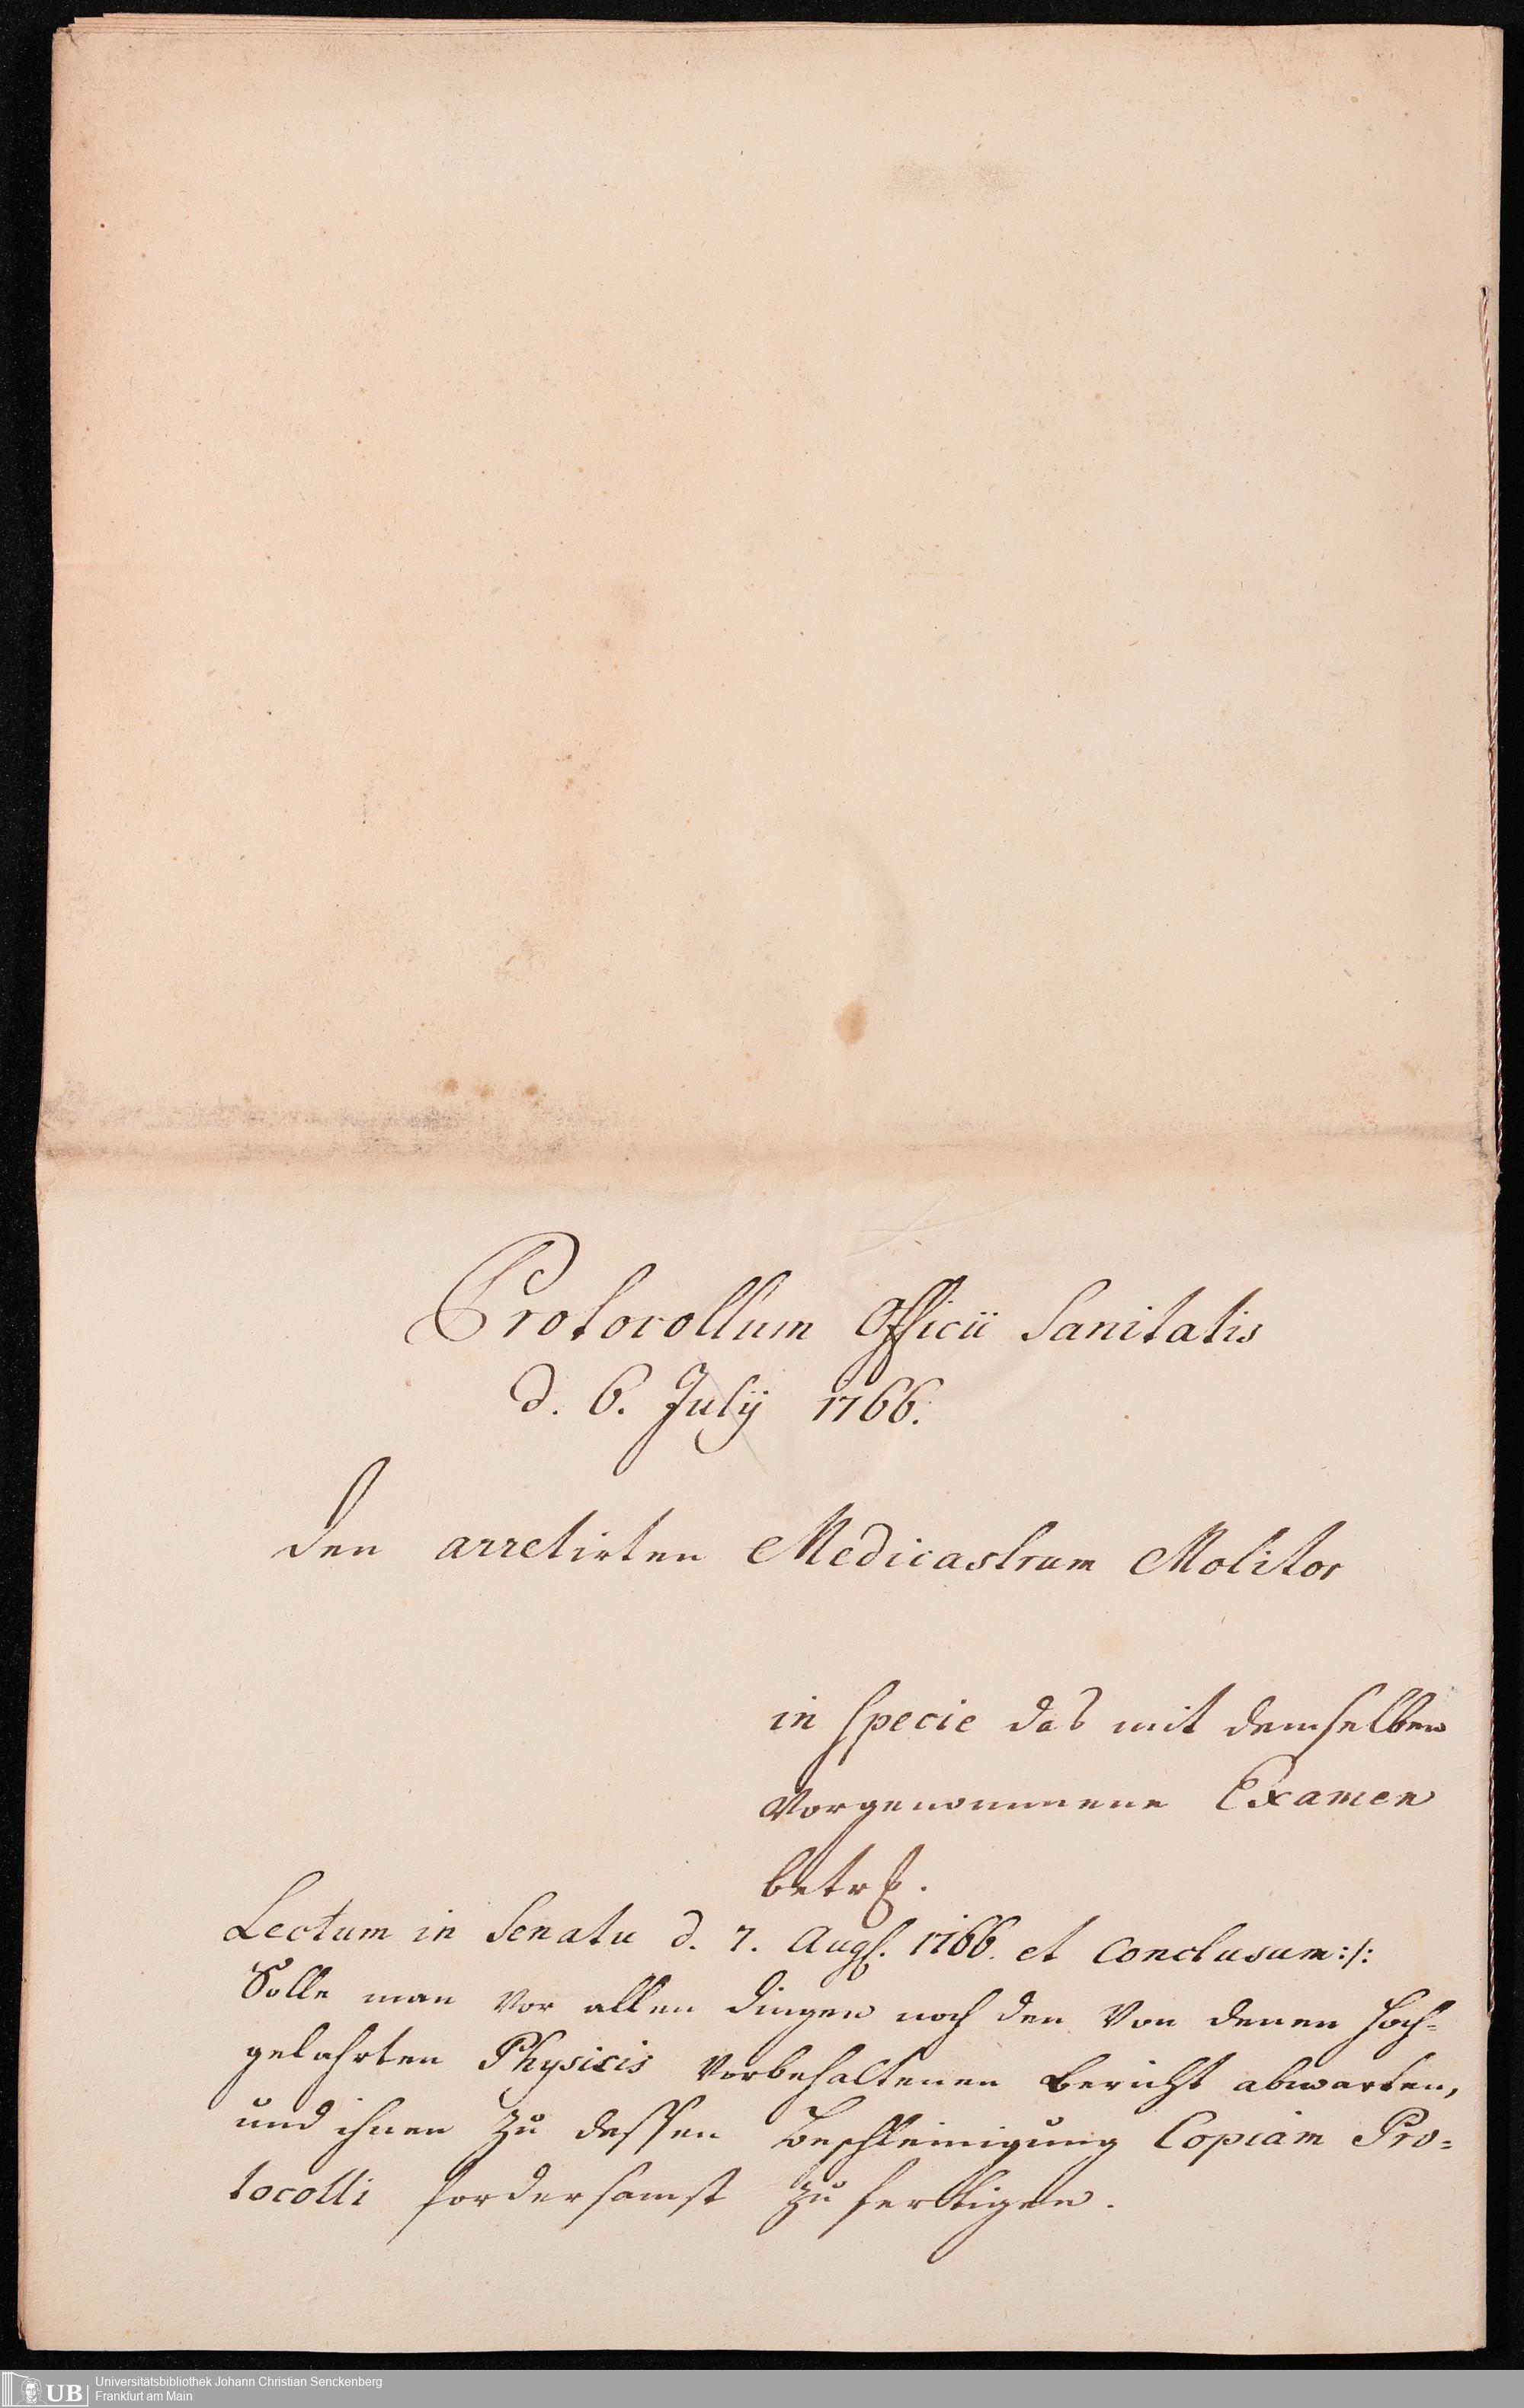 Protocollum Officii Sanitatis
d. 6. Julÿ 1766.
den arretirten Medicastrum Molitor
in specie das mit demselben
vorgenommene Examen
betrf.
Lectum in Senatu d. 7. Augs. 1766. et Conclusum:/:
Solle man vor allen dingen noch den von denen hoch-
gelahrten Physicis vorbehaltenen Bericht abwarten,
und ihnen zu dessen Beschleinigung Copiam Pro-
tocolli fordersamst zu fertigen.
UB
Universitätsbibliothek Johann Christian Senckenberg
Frankfurt am Main